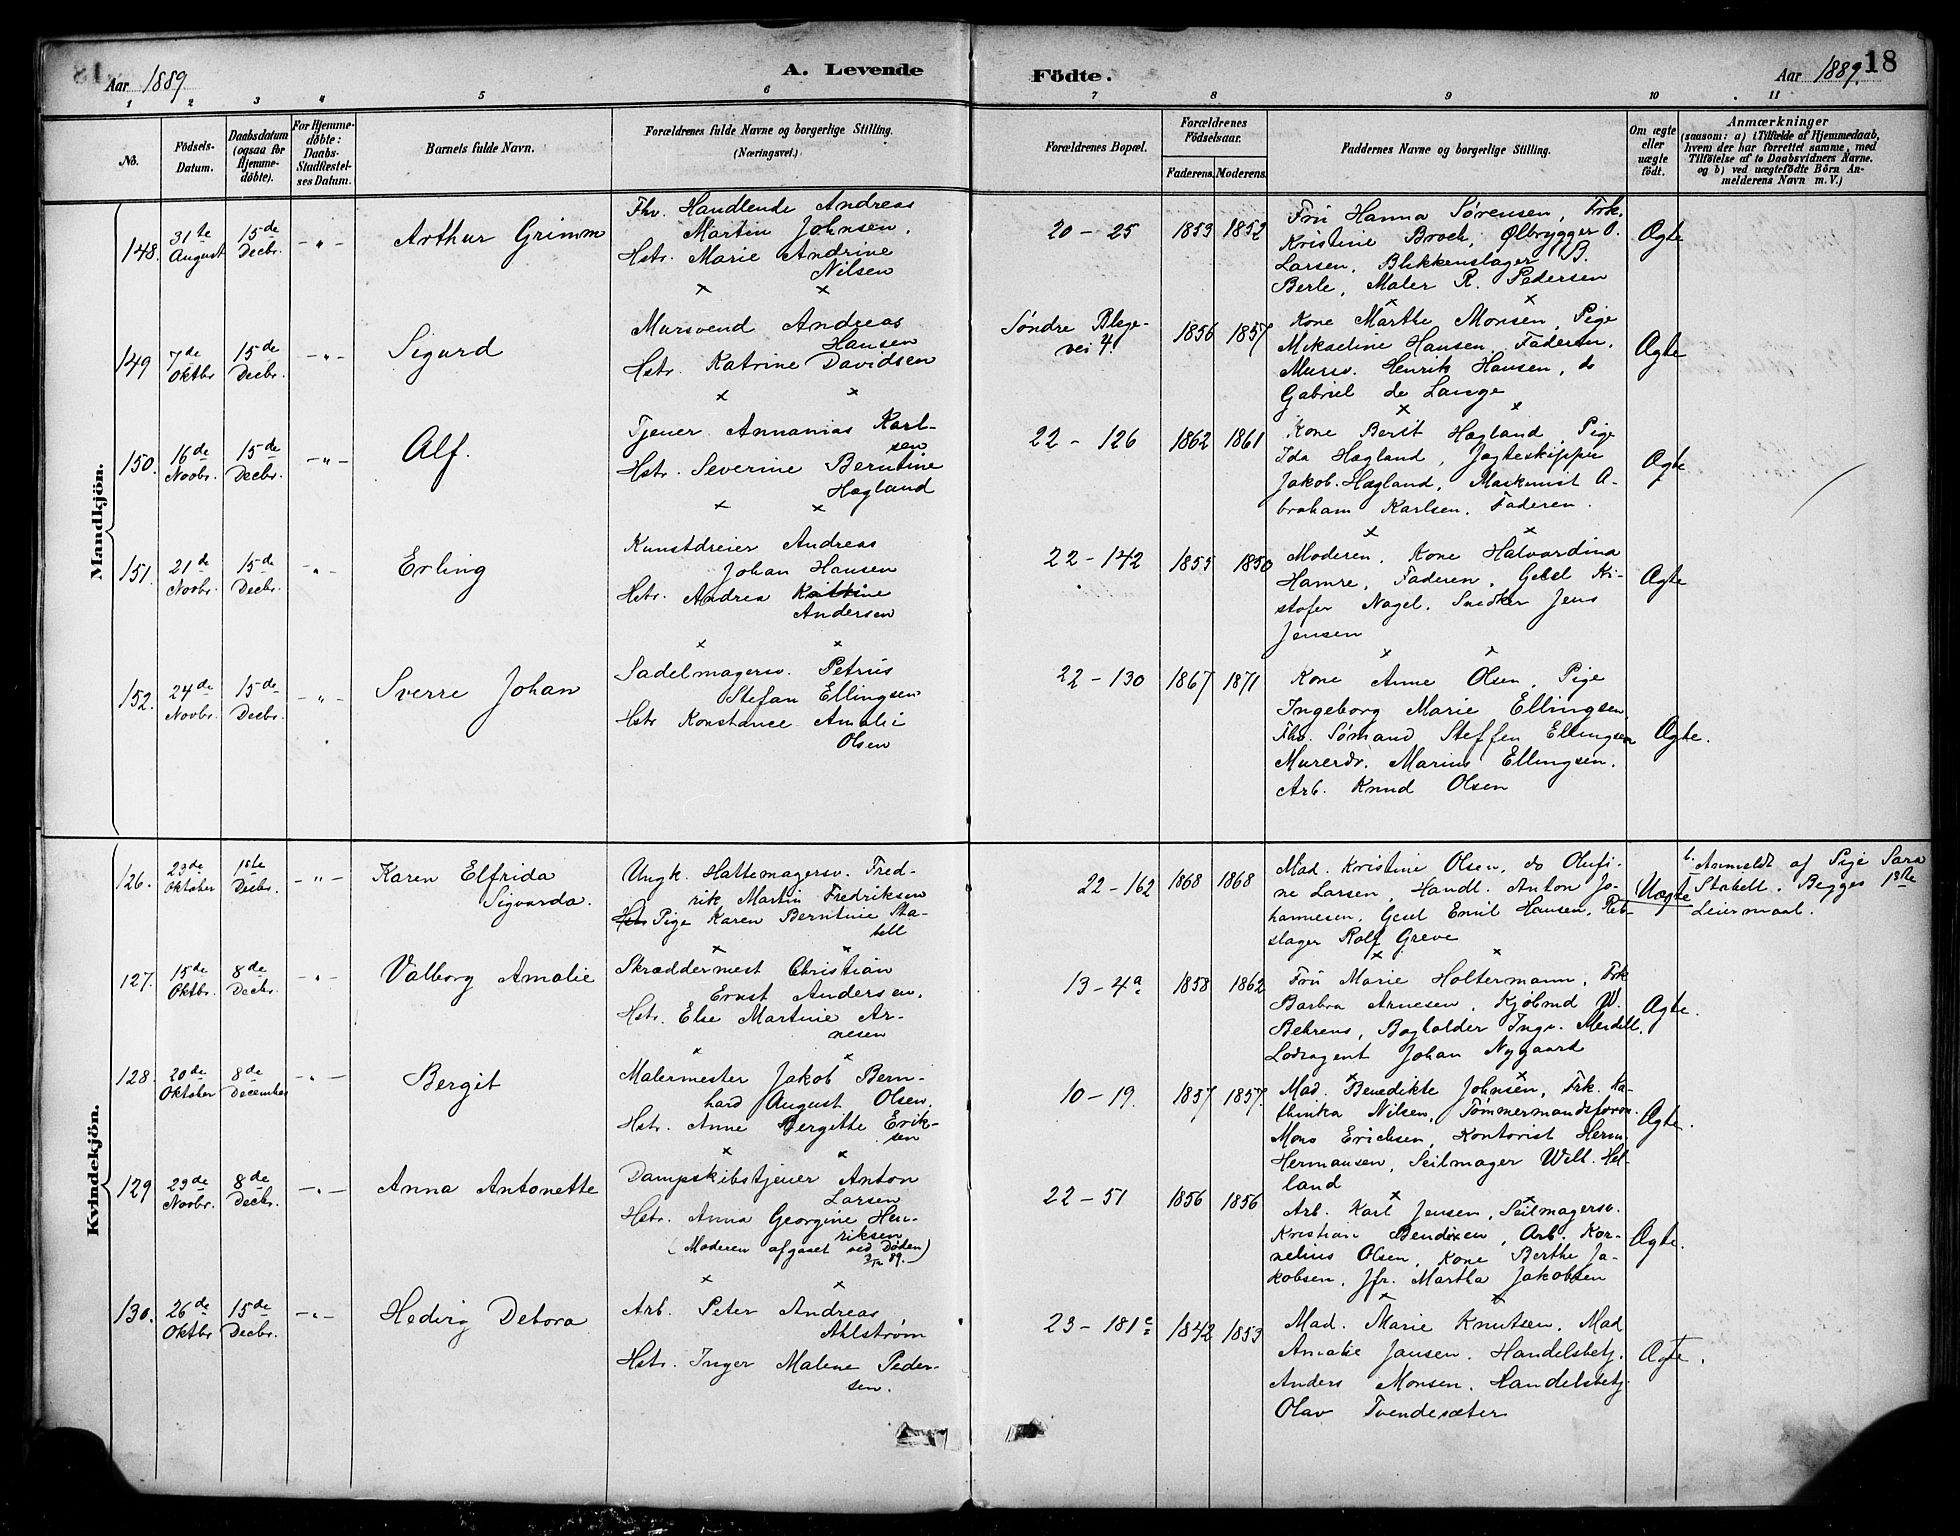 Aar 1889 A. Levende Födte. Aar 1889. 18
1 2 3 4 5 6 7 8 9 10 11
No.
Födsels-
Datum.
Daabsdatum
(ogsaa for
Hjemme-
döbte).
For Hjemme-
döbte:
Daabs-
Stadfæstel-
ses Datum.
Barnets fulde Navn.
Forældrenes fulde Navne og borgerlige Stilling.
(Næringsvei.)
Forældrenes Bopæl.
Forældrenes
Födselsaar.
Faderens. Moderens.
Faddernes Navne og borgerlige Stilling.
Om ægte
eller
uægte
födt.
Anmærkninger
(saasom: a) i Tilfælde af Hjemmedaab,
hvem der har forrettet samme, med
Tilföielse af to Daabsvidners Navne.
og b) ved uægtefödte Börn An-
melderens Navn m. V.)
Mandkjön.
148. 31te August 15de Decbr. -"- Arthur Grimm
Fhv. Handlende Andreas
Martin Johnsen,
Hstr. Marie Andrine
Nilsen
20 - 25 1853 1852
Fru Hanna Sørensen, Frk.
Kristine Broch, Ølbrygger O.
Larsen, Blikkenslager B.
Berle, Maler R. Pedersen
Ægte
149 7de Oktbr 15de Decbr. -"- Sigurd
Mursvend Andreas
Hansen
Hstr. Katrine Davidsen
Søndre Blege-
vei 4. 1856 1857
Kone Marthe Monsen, Pige
Mikaeline Hansen, Faderen,
Mursv. Henrik Hansen, do
Gabriel de Lange
Ægte
150. 16de Novbr. 15de Decbr. -"- Alf.
Tjener Annanias Karl-
sen
Hstr. Severine Berntine
Hægland
22 - 126 1862 1861
Kone Berit Hægland, Pige
Ida Hægland, Jagteskipper
Jakob Hægland, Maskinist A-
braham Karlsen, Faderen.
Ægte
151. 21de Novbr. 15de Decbr. -"- Erling
Kunstdreier Andreas
Johan Hansen
Hstr. Andrea
Andersen
22 - 142 1855 1850
Moderen, Kone Halvardina
Hamre, Faderen, Gesel Kri-
stofer Nagel, Snedker Jens
Jensen
Ægte
152. 24de Novbr. 15de Decbr. -"- Sverre Johan
Sadelmagersv. Petrus
Stefan Ellingsen
Hstr Konstance Amalie
Olsen
22 - 130 1867 1871
Kone Anne Olsen, Pige
Ingeborg Marie Ellingsen,
Fhv. Sømand Steffen Ellingsen
Murersv. Marius Ellingsen,
Arb. Knud Olsen
Ægte.
Kvindekjön.
126. 23de Oktober 1ste Decbr. -"- Karen Elfrida
Sigvarda.
Ungk. Hattemagersv. Fred-
rik Martin Fredriksen
Hstr Pige Karen Berntine Sta-
bell
22 - 162 1868 1868
Mad. Kristine Olsen, do Olufi-
ne Larsen, Handl. Anton Jo-
hannesen, Gesel Emil Hansen, Reb-
slager Rolf Greve
Uægte
b. Anmeldt af Pige Sara
Stabell. Begges 1ste
Leiermaal.
127. 15de Oktbr. 8de Decbr. -"- Valborg Amalie
Skræddermest Christian
Ernst Andersen,
Hstr. Else Martine Ar-
nesen
13 - 4a 1858 1862
Fru Marie Holtermann, Frk
Barbra Arnesen, Kjøbmd W.
Behrens, Bogholder Ingv. Mendell,
Lodsagent Johan Nygaard
Ægte.
128. 20de Oktober 8de December -"- Bergit
Malermester Jakob Bern-
hard August Olsen.
Hstr. Anne Bergitte Erik-
sen
10 - 19. 1857 1857.
Mad. Benedikte Johnsen, Frk. Ka-
thinka Nilsen, Tømmermandsform.
Mons Erichsen, Kontorist Herm.
Hermansen, Seilmager Will. Hel-
land
Ægte.
129 29de Novbr. 8de Decbr. -"- Anna Antonette
Dampskibstjener Anton
Larsen
Hstr. Anna Georgine Hen-
riksen
(Moderen afgaaet ved Døden)
3/12 89.
22 - 51 1856 1856
Arb. Karl Jensen, Seilmagersv.
Kristian Bendixen, Arb. Kor-
nelius Olsen, Kone Berthe Ja-
kobsen, Jfr. Martha Jakobsen
Ægte.
130. 26de Oktbr 15de Decbr. -"- Hedvig Debora
Arb. Peter Andreas
Ahlstrøm
Hstr. Inger Malene Peder-
sen.
23 - 181c 1842 1853
Mad. Marie Knutsen, Mad
Amalie Jansen, Handelsbetj.
Anders Monsen, Handelsbetj.
Olav Tvendesæter
Ægte.